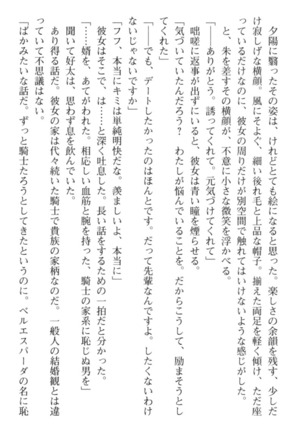 夕陽に翳ったその姿は、けれどとても絵になると思った。楽しさの余韻を残す、少しだ
け寂しげな横顔。風にそよぐ、細い後れ毛と上品な帽子。揃えた両足を軽く傾け、ただ座
っているだけなのに、彼女の周りだけが別空間で触れてはいけないような感じがした。
と、朱を差すその横顔が、不意に小さな微笑を浮かべる。
「ありがとう。誘ってくれて。元気づけてくれて」
咄嗟に返事が出ずにいると、彼女は青い瞳を煙らせる。
「気づいていたんだろう？　わたしが悩んでいることを。だからこうして、励まそうとし
てくれた」
「――でも、デートしたかったのはほんとです。だって先輩なんですよ。したくないわけ
ないじゃないですか」
「フフ、本当にキミは単純明快だな。羨ましいよ、本当に」
彼女はそこで、は……と深く吐息した。長い話をするための一拍だと分かった。
「……婿を、あてがわれた。相応しい血筋と腕を持った、騎士の家系に恥じぬ男を」
聞いて好太は、思わず息を飲んでいた。
あり得る話だ。彼女の家は代々続いた騎士で貴族の家柄なのだ。一般人の結婚観とは違
っていて不思議はない。
「ばかみたいな話だ。ずっと騎士たろうとしてきたというのに。ベルエスパーダの名に恥